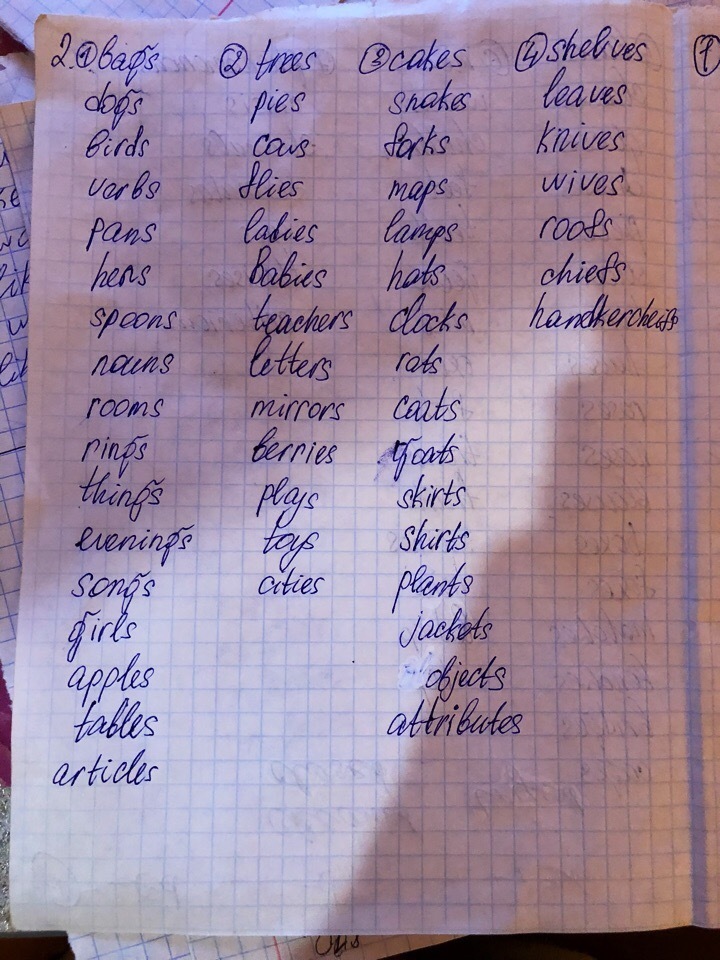 2. ① bags
dogs
birds
verbs
pans
hens
spoons
nouns
rooms
rings
things
evenings
songs
girls
apples
tables
articles
② trees
pies
cows
flies
ladies
babies
teachers
letters
mirrors
berries
plays
toys
cities
③ cakes
snakes
forks
maps
lamps
hats
clocks
rats
coats
goats
skirts
shirts
plants
jackets
objects
attributes
④ shelives
leaves
knives
wives
roofs
chiefs
handkercheifs